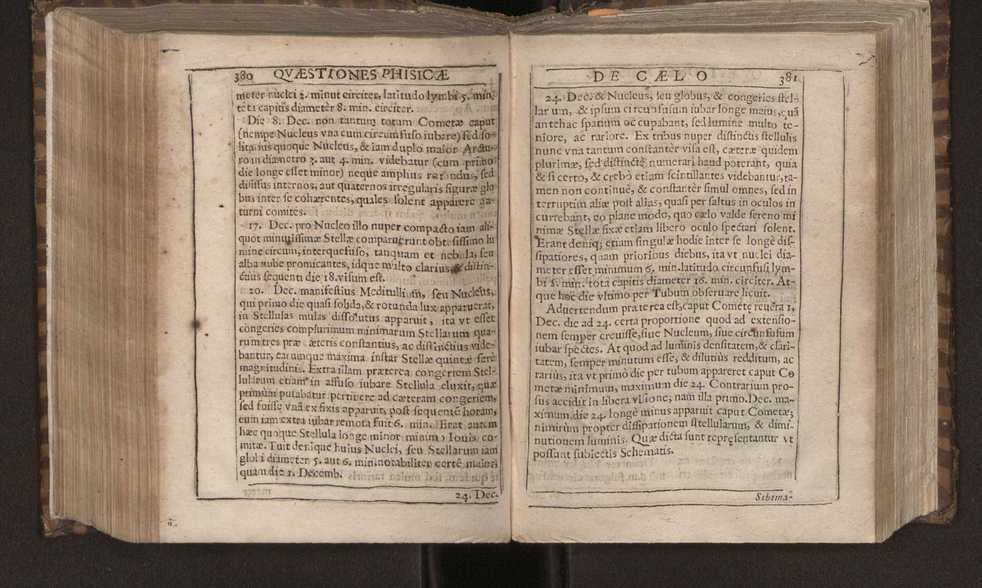 380 QVÆSTIONES PHISICÆ
meter nuclei 2. minut circiter, latitudo lymbi 5. min,
tota capitis diameter 8. min. circiter.
Die 8. Dec. non tantum totum Cometæ caput
(nempe Nucleus vna cum circumfuso iubare) sed so-
litarius quoque Nucleus, & iam duplo maior Arctu-
ro in diametro 3. aut 4. min. videbatur (cum primo
die longe esset minor) neque amphus rotundus, sed
diuisus internos, aut quaternos irregularis figuræ glo
bus inter se cohærentes, quales solent apparere
turni comites.
17. Dec. pro Nucleo illo nuper compacto iam ali-
quot minutissimæ Stellæ comparuerunt obtusissimo lu
mine circum, interquefuso, tanquam et nebula, seu
alba nube promicantes, idque multo clarius, & distin-
ctius sequenti die 18. visum est.
20. Dec. manifestius Meditullium, seu Nucleus,
qui primo die quasi solida, & rotunda lux apparuerat,
in Stellulas mulas dissolutus apparuit, ita vt esset
congeries complurimum minimarum Stellarum qua-
rum tres præ cæteris constantius, ac distinctius vide-
bantur, earumque maxima instar Stellæ quintæ ferè
magnitudinis. Extra illam præterea congeriem Stel-
lularum etiam in affuso iubare Stellula eluxit, quæ
primum putabatur pertinere ad cæteram congeriem,
sed fuisse vnā ex fixis apparuit, post sequentē horam,
cum iam extra iubar remota fuit 6. min. Erat autem
hæc quoque Stellula longe minor minimo Iouis co-
mite. Fuit denique huius Nuclei, seu Stellarum iam
globi diameter 5. aut 6. min. notabiliter certè maiori
quam die 1. Decemb.
24. Dec.
DE CÆLO 381
24. Dec. & Nucleus, seu globus, & congeries stel-
larum, & ipsum circunfusum iubar longe maius, quā
antehac spatium occupabant, sed lumine multo te-
niore, ac rariore. Ex tribus nuper distinctis stellulis
nunc vna tantum constanter visa est, cæteræ quidem
plurimæ, sed distinctè numerari haud poterant, quia
& si certo, & crebò etiam scintillantes videbantur, ta-
men non continuè, & constanter simul omnes, sed in
terruptim aliæ post alias, quasi per saltus in oculos in
currebant, eo plane modo, quo cælo valde sereno mi
nimæ Stellæ fixæ etiam libero oculo spectari solent.
Erant deniq; etiam singulæ hodie inter se longè dis-
sipatiores, quam prioribus diebus, ita vt nuclei dia-
meter esset minimum 6. min. latitudo circunfusi lym-
bi 5. min. tota capitis diameter 16. min. circiter. At-
que hac die vltimo per Tubum obseruare licuit.
Aduertendum præterea est, caput Cometæ reuera 1.
Dec. die ad 24. certa proportione quod ad extensio-
nem semper creuisse, siue Nucleum, siue circunfusum
iubar spectes. At quod ad luminis densitatem, & clari-
tatem, semper minutum esse, & dilutius redditum, ac
rarius, ita vt primò die per tubum appareret caput Co
metæ minimum, maximum die 24. Contrarium pror-
sus accidit in libera visione; nam illa primo. Dec. ma-
ximum, die 24. longè minus apparuit caput Cometæ;
nimirum propter dissipationem stellularum, & dimi-
nutionem luminis. Quæ dicta sunt repręsentantur vt
possunt subiectis Schematis.
Schema-